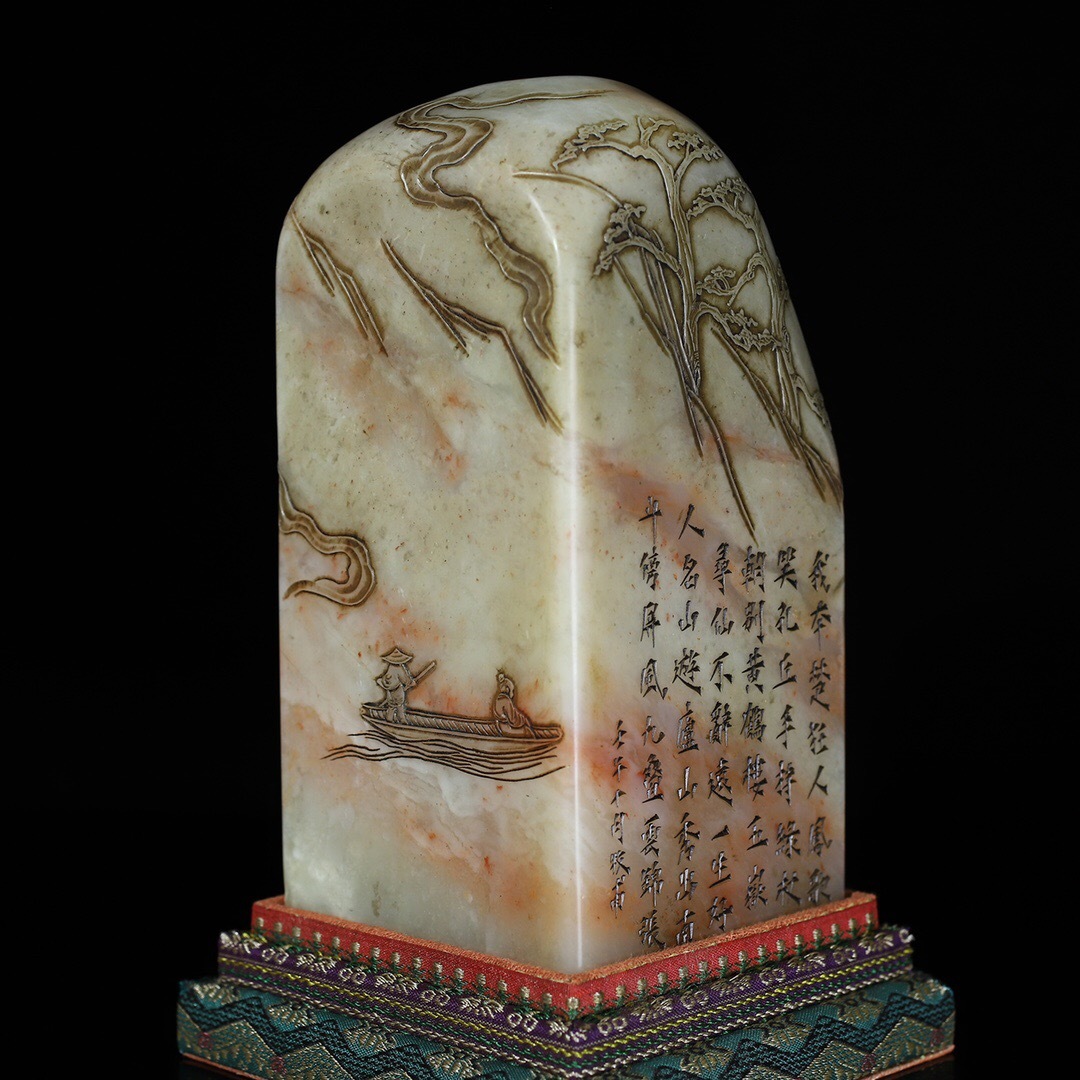 我本楚狂人鳳歌
笑孔丘手持綠杖
朝別黃鶴樓五嶽
尋仙不辭遠一生好
人名山遊廬山秀出南
斗傍屏風九疊雲錦張
壬午十月牧甫